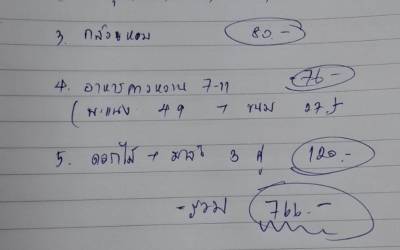 3. กล้วยหอม 80.-
4. อาหารคาวหวาน 7-11 76.-
(พะแนง 49 + ขนม 27.-)
5. ดอกไม้ + มาลัย 3 คู่ 120.-
- รวม 766.-